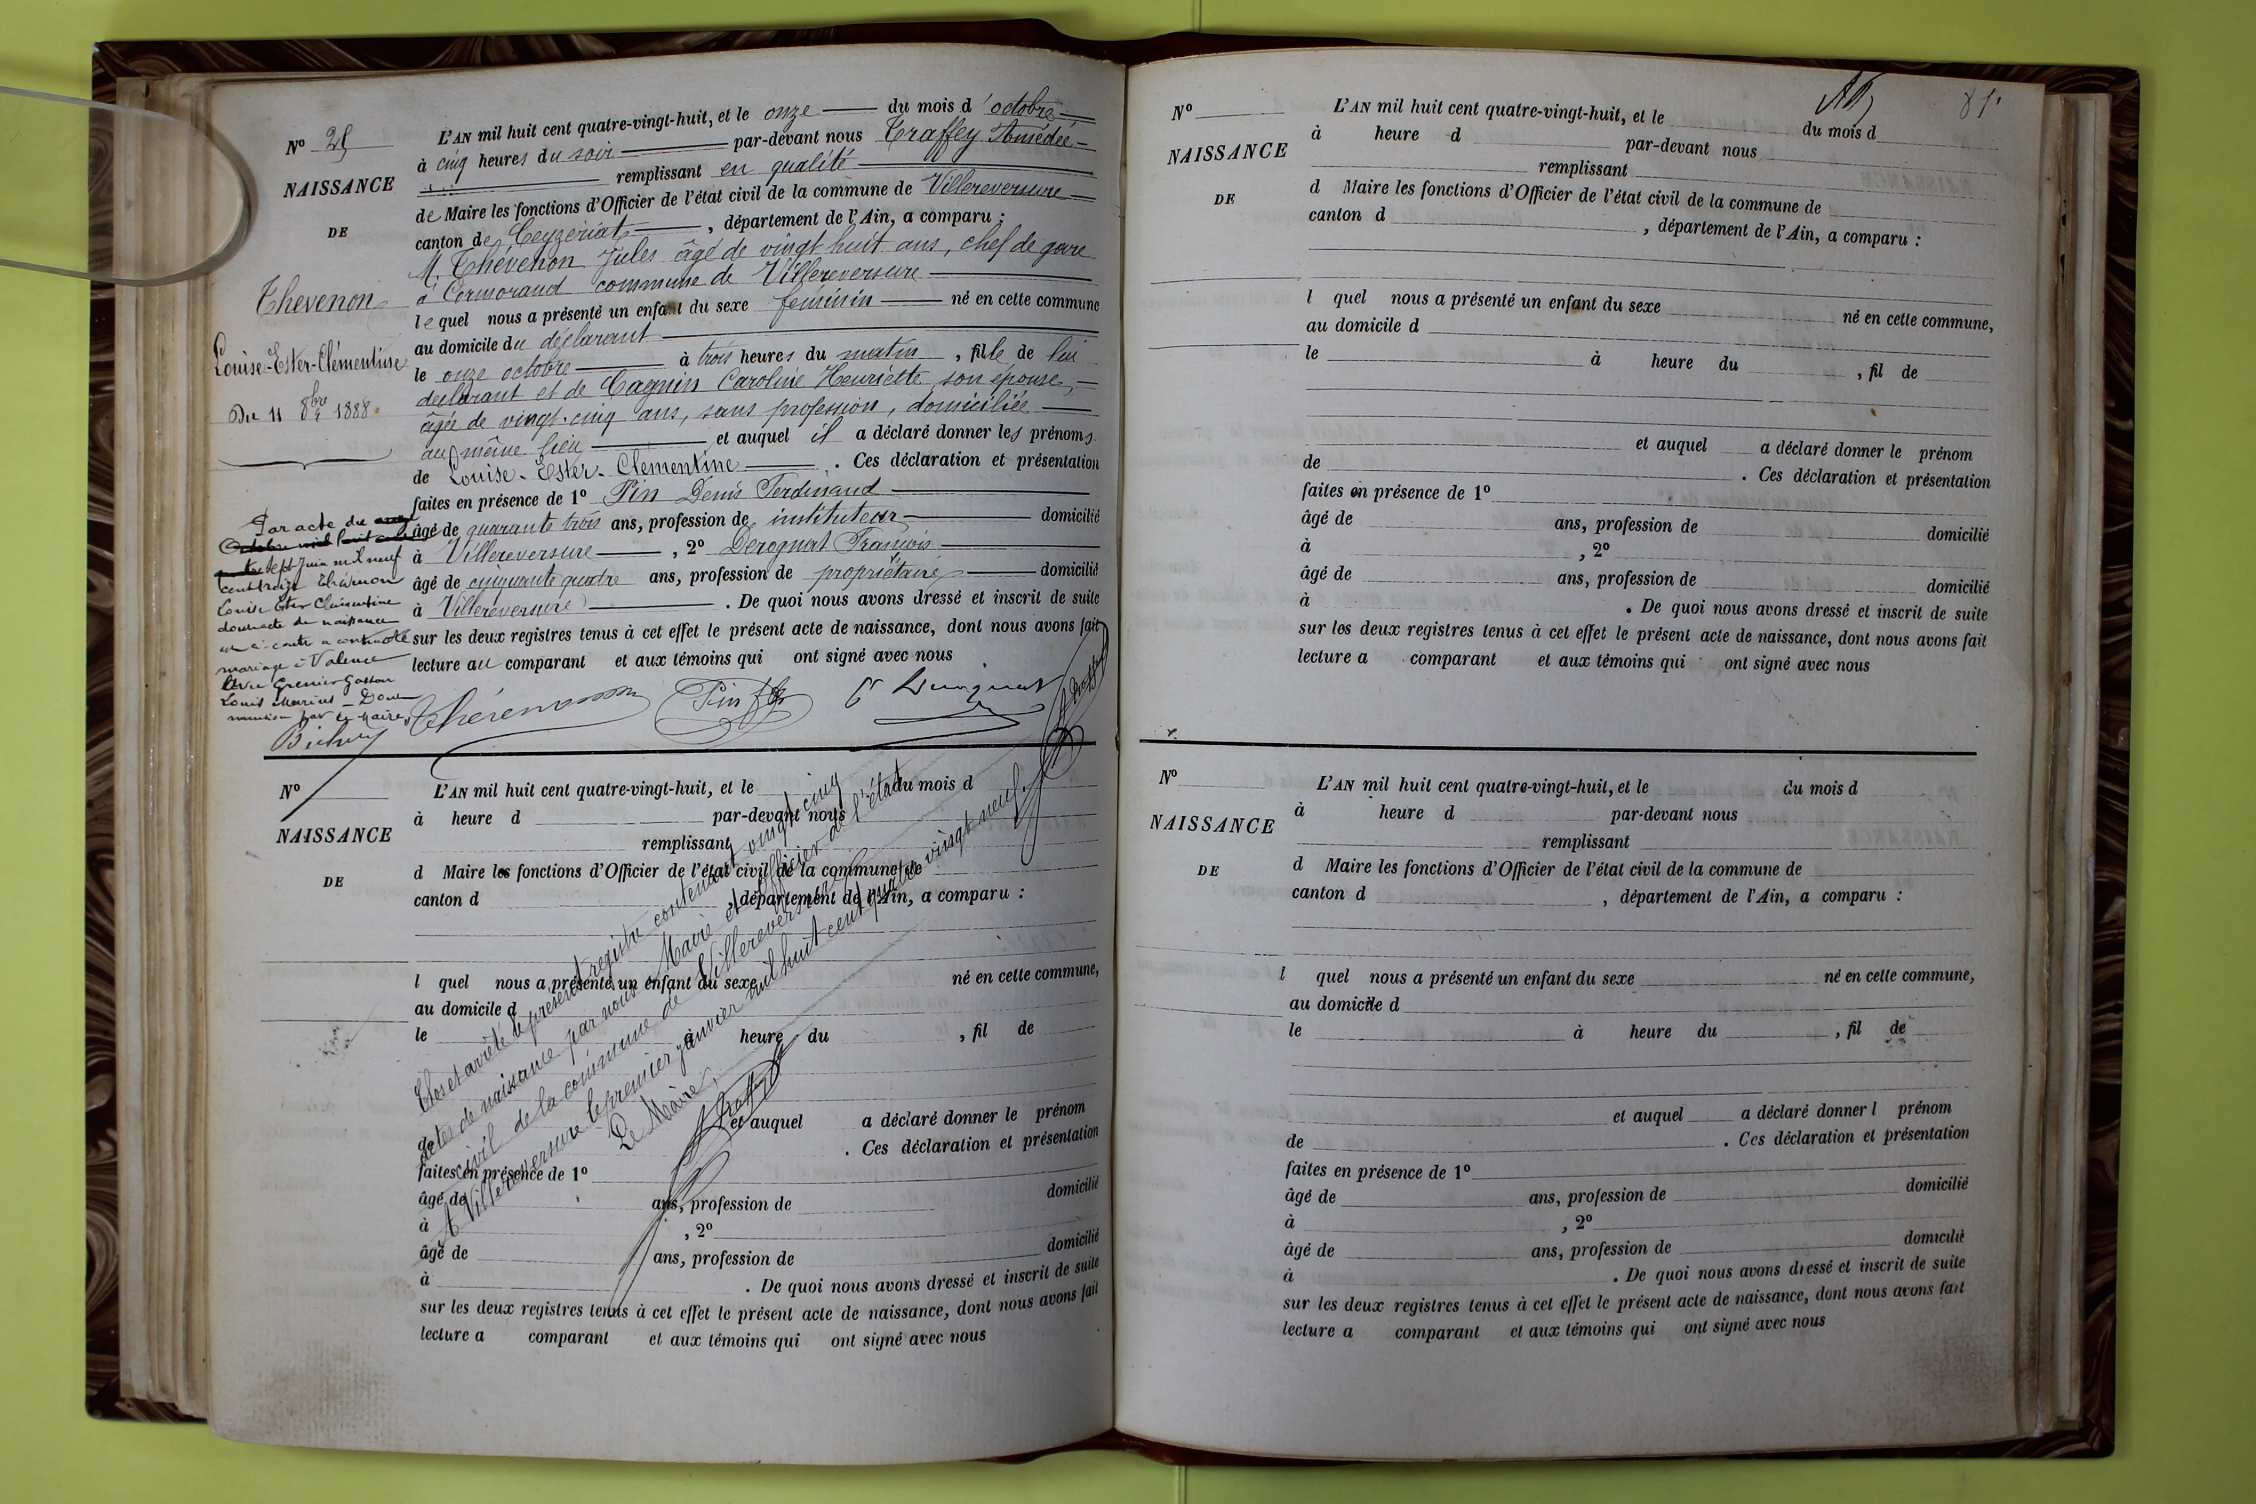 Nº 25
NAISSANCE
DE
Thevenon
Louise-Ester-Clémentine
Du 11 8bre 1888.
L'AN mil huit cent quatre-vingt-huit, et le onze du mois d'octobre
à cinq heures du soir par-devant nous Traffey Amédée
remplissant en qualité
de Maire les fonctions d'Officier de l'état civil de la commune de Villereversure
canton de Ceyzériat, département de l'Ain, a comparu :
M. Thévenon Jules âgé de vingt huit ans, chef de gare
à Cormoraud commune de Villereversure
lequel nous a présenté un enfant du sexe féminin né en cette commune
au domicile du déclarant
le onze octobre à trois heures du matin, fille de lui
déclarant et de Cagnin Caroline Henriette son épouse,
âgée de vingt-cinq ans, sans profession, domiciliée
au même lieu et auquel il a déclaré donner les prénoms
de Louise-Ester-Clémentine. Ces déclaration et présentation
faites en présence de 1º Pin Denis Ferdinand
âgé de quarante trois ans, profession de instituteur domicilié
à Villereversure, 2º Derognat François
âgé de cinquante quatre ans, profession de propriétaire domicilié
à Villereversure. De quoi nous avons dressé et inscrit de suite
sur les deux registres tenus à cet effet le présent acte de naissance, dont nous avons fait
lecture au comparant et aux témoins qui ont signé avec nous
Thévenon Pin
Par acte du
sept Juin mil neuf
cent treize Thévenon
Louise Ester Clémentine
dont acte de naissance
est ci-contre a contracté
mariage à Valence
avec Grenier Gaston
Louis Marius - Dont
mention par le Maire,
Nº
NAISSANCE
DE
L'AN mil huit cent quatre-vingt-huit, et le du mois d
à heure d par-devant nous
remplissant
d Maire les fonctions d'Officier de l'état civil de la commune de
canton d , département de l'Ain, a comparu :
l quel nous a présenté un enfant du sexe né en cette commune,
au domicile d
le à heure du , fil de
et auquel a déclaré donner le prénom
. Ces déclaration et présentation
faites en présence de 1º
âgé de ans, profession de domicilié
à , 2º
âgé de ans, profession de domicilié
à . De quoi nous avons dressé et inscrit de suite
sur les deux registres tenus à cet effet le présent acte de naissance, dont nous avons fait
lecture a comparant et aux témoins qui ont signé avec nous
Clos et arrêté le présent registre contenant vingt cinq
actes de naissance par nous Maire et officier de l'état
civil de la commune de Villereversure
A Villereversure le premier janvier mil huit cent quatre vingt neuf.
Le Maire,
81.
Nº
NAISSANCE
DE
L'AN mil huit cent quatre-vingt-huit, et le du mois d
à heure d par-devant nous
remplissant
d Maire les fonctions d'Officier de l'état civil de la commune de
canton d , département de l'Ain, a comparu :
l quel nous a présenté un enfant du sexe né en cette commune,
au domicile d
le à heure du , fil de
et auquel a déclaré donner le prénom
de . Ces déclaration et présentation
faites en présence de 1º
âgé de ans, profession de domicilié
à , 2º
âgé de ans, profession de domicilié
à . De quoi nous avons dressé et inscrit de suite
sur les deux registres tenus à cet effet le présent acte de naissance, dont nous avons fait
lecture a comparant et aux témoins qui ont signé avec nous
Nº
NAISSANCE
DE
L'AN mil huit cent quatre-vingt-huit, et le du mois d
à heure d par-devant nous
remplissant
d Maire les fonctions d'Officier de l'état civil de la commune de
canton d , département de l'Ain, a comparu :
l quel nous a présenté un enfant du sexe né en cette commune,
au domicile d
le à heure du , fil de
et auquel a déclaré donner l prénom
de . Ces déclaration et présentation
faites en présence de 1º
âgé de ans, profession de domicilié
à , 2º
âgé de ans, profession de domicilié
à . De quoi nous avons dressé et inscrit de suite
sur les deux registres tenus à cet effet le présent acte de naissance, dont nous avons fait
lecture a comparant et aux témoins qui ont signé avec nous